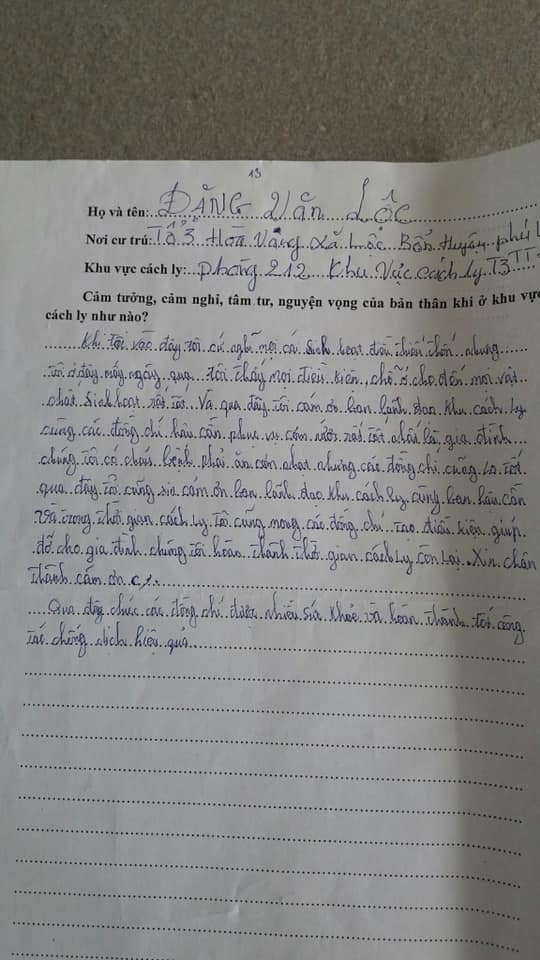 13
Họ và tên: ĐẶNG Văn Lộc
Nơi cư trú: Tổ 3 Hoà Vang Xã Lộc Bổn Huyện phú L
Khu vực cách ly: phòng 212 Khu Vực cách ly T3
Cảm tưởng, cảm nghĩ, tâm tư, nguyện vọng của bản thân khi ở khu vực
cách ly như nào?
Khi tôi vào đây tôi cứ nghĩ mọi cá sinh hoạt đời thiếu thốn nhưng
tôi ở đây mấy ngày qua tôi thấy mọi điều kiện, chỗ ở cho đến mọi vật
chất sinh hoạt rất tốt. Và qua đây tôi cám ơn ban lãnh đạo khu cách ly
cùng các đồng chí hậu cần phục vụ cơm nước rất tốt nhất là gia đình
chúng tôi có cháu bệnh phải ăn cơm nhạt nhưng các đồng chí cũng lo tốt
qua đây tôi cũng xin cám ơn ban lãnh đạo khu cách ly cùng ban hậu cần
Và trong thời gian cách ly tôi cũng mong các đồng chí tạo điều kiện giúp
đỡ cho gia đình chúng tôi hoàn thành thời gian cách ly còn lại. Xin chân
thành cám ơn
Qua đây chúc các đồng chí được nhiều sức khỏe và hoàn thành tốt công
tác chống dịch hiệu quả